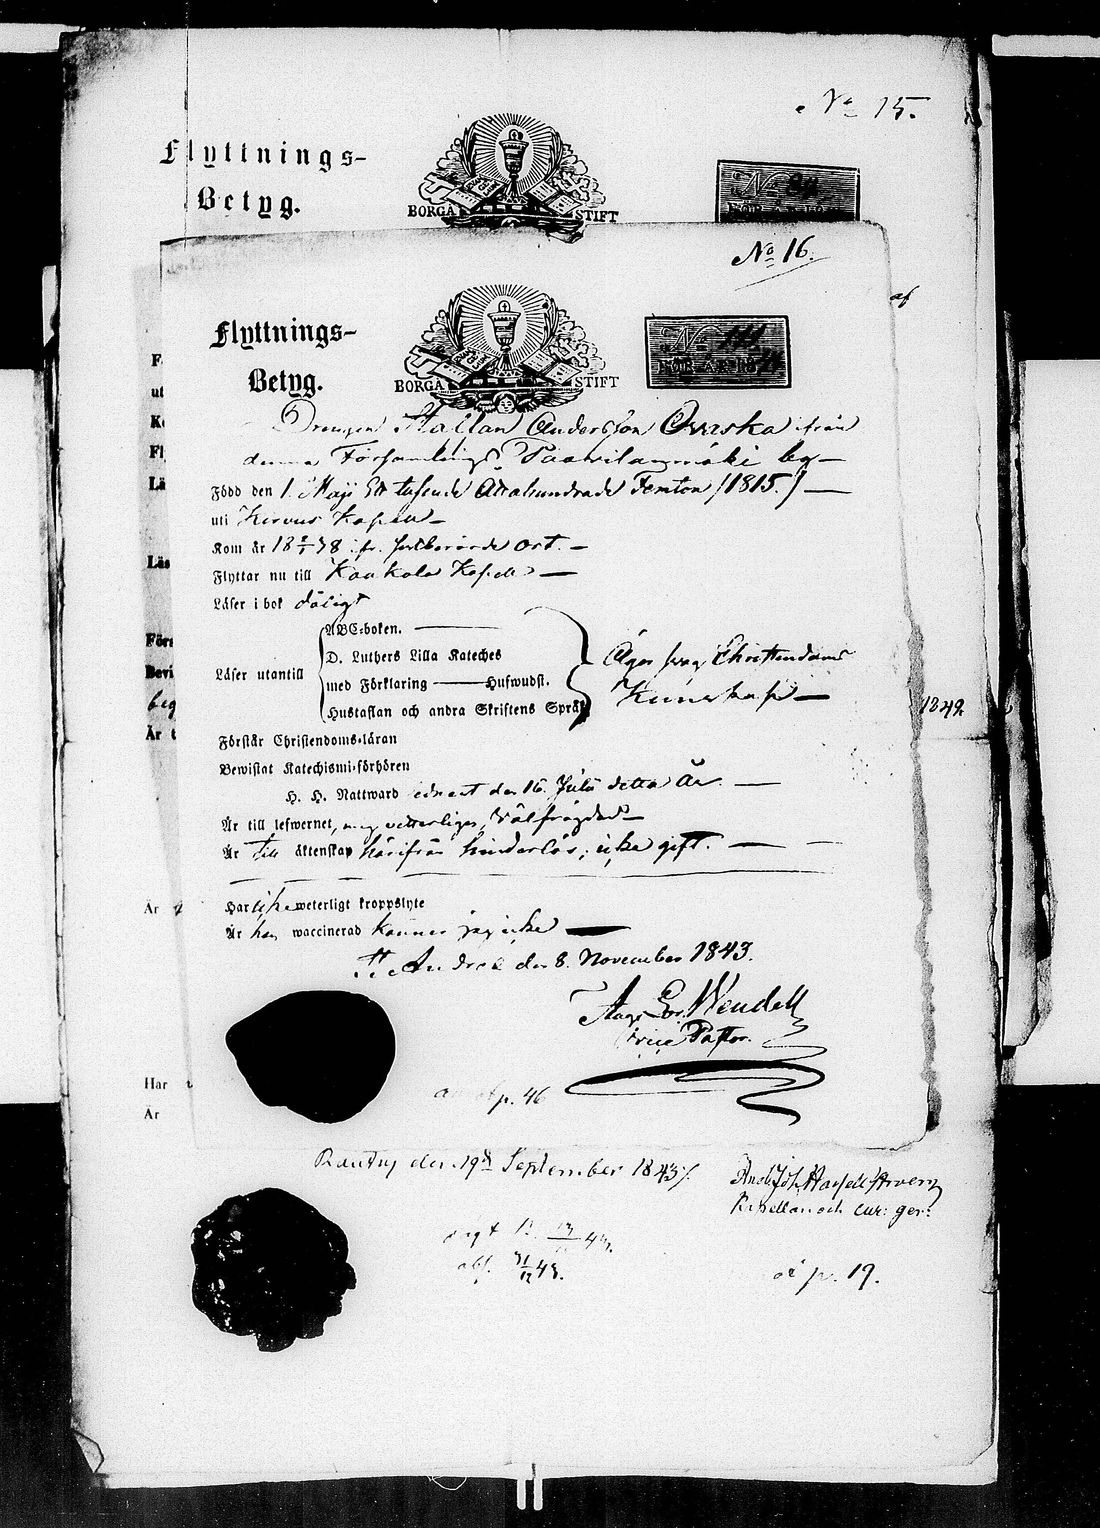 No 15.
Flyttnings-
Betyg.
BORGÅ STIFT
No
FÖR ÅR 18
af
No 16.
Flyttnings-
Betyg.
BORGÅ STIFT
No 111
FÖR ÅR 18
Drengen Staffan Andersson Orraska från
denna Församlings Paavilanmäki by
Född den 1. Maji Ett tusende Åttahundrade Femton (1815.)
uti Kervus Kapell
Kom år 18 38 fr. ort.
Flyttar nu till Kaukola Kapell
Läser i bok dåligt
Läser utantill
ABC-boken.
D. Luthers Lilla Kateches
med Förklaring Hufwudst.
Hustaflan och andra Skriftens Språk
Äger svag Christendoms
Kunskap
Förstår Christendoms-läran
Bewistat Katechismi-förhören
H. H. Nattward senast den 16. Julii detta År.
Är till lefwernet, mig vetterligen, välfrägdad
Är till äktenskap härifrån hinderlös; icke gift.
Har icke weterligt kroppslyte
Är han waccinerad känner jag icke
St. Andreæ den 8. November 1843.
Aug. Er. Wendell
Vice Pastor.
p. 46
F
ut
Fl
Lä
Läs
Förs
Bevi
beg
1842
Är t
Är
Har
Är
Rautus den 19de September 1843.
Kapellan och cur: ger:
43.
abs. 31/12 43.
p. 19.